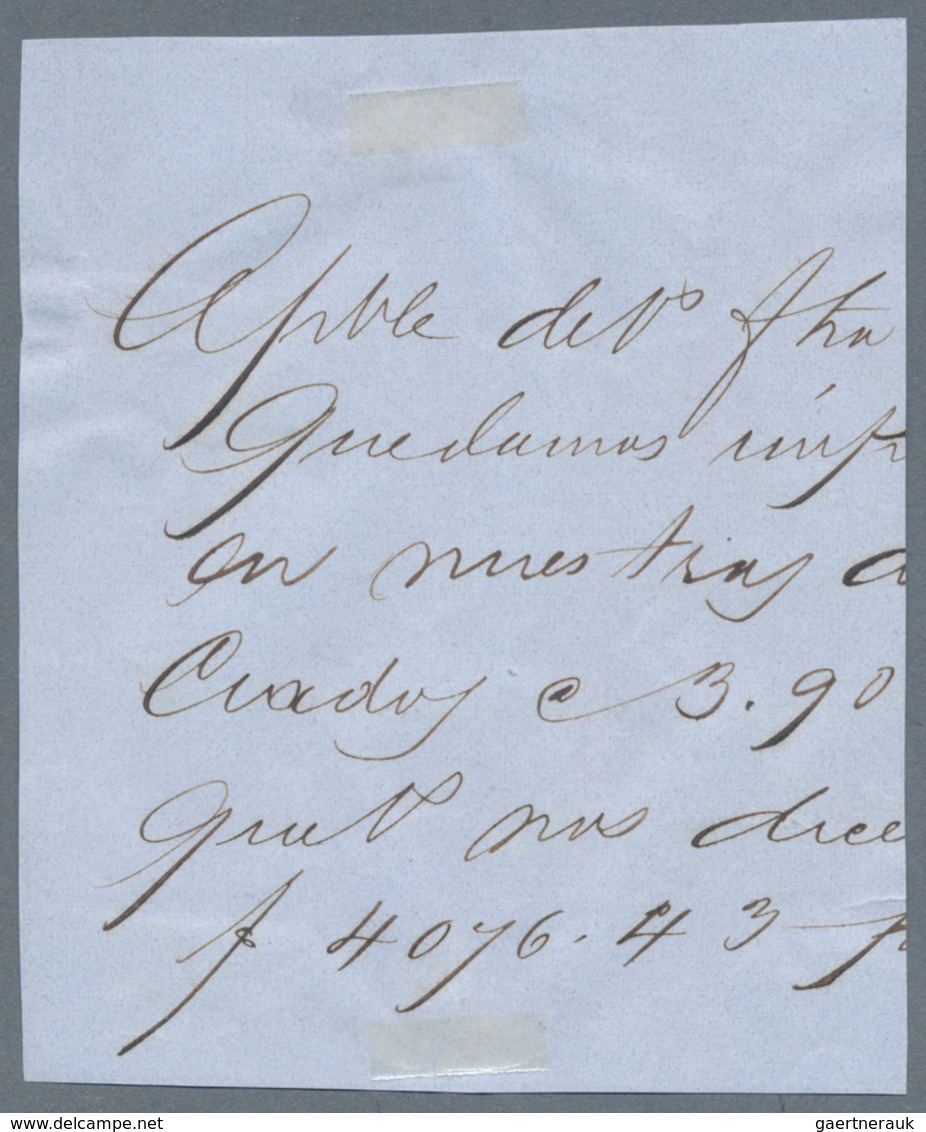 Apble de Vs fha
Quedamos
en nuestras
Cuadoy e 3.90
que Vs nos dice
4076.43
www.delcampe.net
gaertnerauk